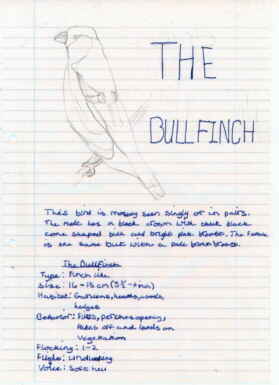 THE
BULLFINCH
This bird is mostly seen singly or in pairs.
The male has a black crown with thick black
cone shaped bill and bright pink breast. The female
is the same but with a pale breast.
The Bullfinch
Type: Finch like
Size: 16-18 cm
Habitat: Gardens, heaths, woods,
hedges
Behavior: Flits, perches openly,
takes off and lands on
vegetation
Flocking: 1-2
Flight: undulating
Voice: